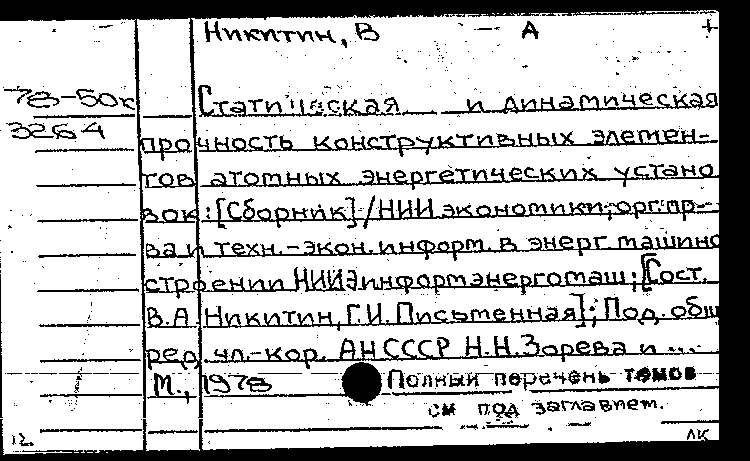 Никитин, В — А +
78-50к
[Статическая и динамическая
3264
прочность конструктивных элемен-
тов атомных энергетических устано
вок: [Сборник] / НИИ экономики, орг. пр-
ва и техн.-экон. информ. в энерг машино
строении НИИЭинформэнергомаш; [Сост.
В.А. Никитин, Г.И. Письменная]; Под. общ
ред. чл.-кор. АН СССР Н.Н. Зорева и ...
М., 1978 Полный перечень томов
см под заглавием.
12. ЛК